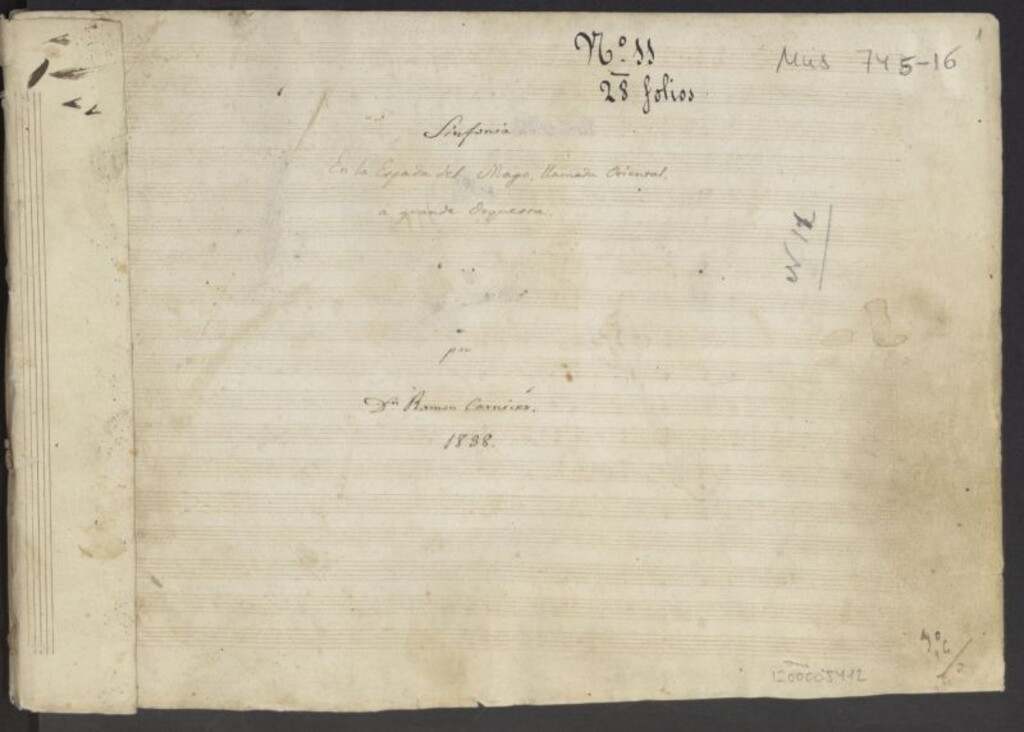 Nº. 11
28 folios
Mus 745-16
1
Sinfonia
En la Espada del Mago, llamada Oriental,
a grande Orquesta.
por
Dn Ramon Carnicer.
1838.